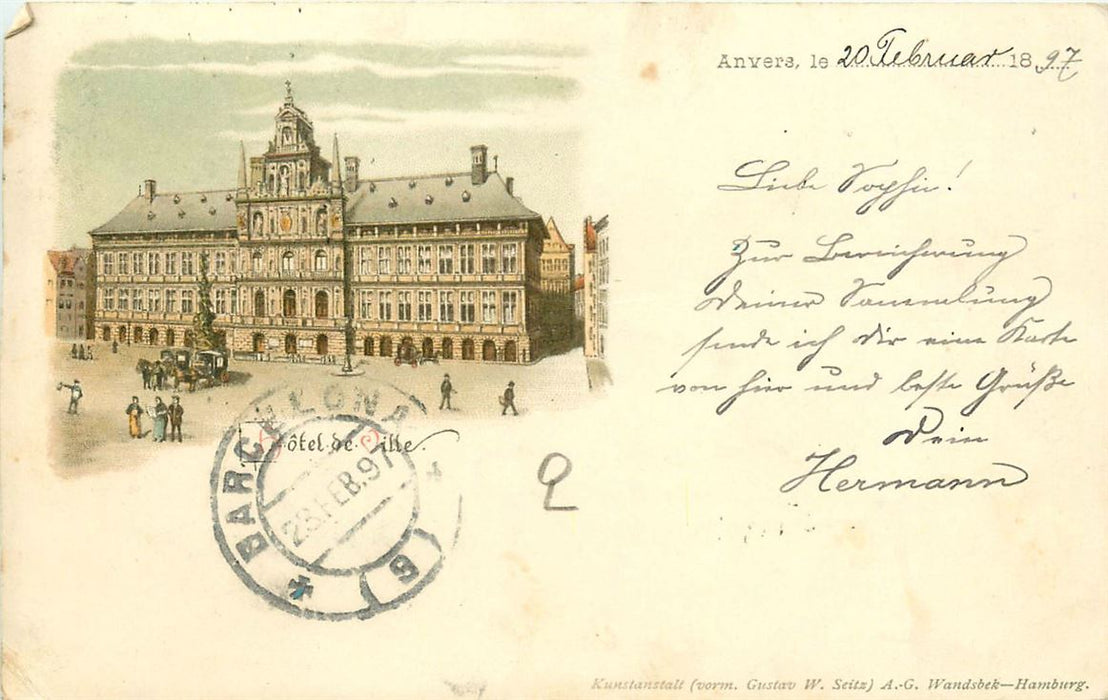 Anvers, le 20 Februar 1897
Liebe Sophie!
Zur Bereicherung
Deiner Sammlung
sende ich Dir eine Karte
von hier und beste Grüße
Dein
Hermann
Hôtel de Ville.
BARCELONA
23.FEB.97
(6)
Kunstanstalt (vorm. Gustav W. Seitz) A.-G. Wandsbek—Hamburg.